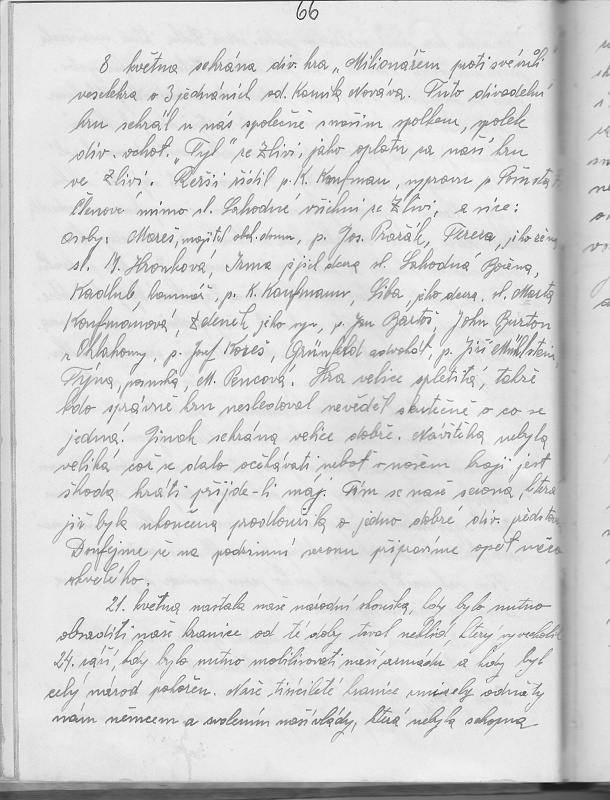 66
8 května sehrána div. hra „Milionářem proti své vůli
veselohra o 3 jednáních od. Kamila Nováva. Tuto divadelní
hru sehrál u nás společně s naším spolkem, spolek
div. ochot. „Tyl" ze Zlivi, jako oplatu za naší hru
ve Zlivi. Režii řídil p. K. Kaufman, výpravu p.
Členové mimo sl. Lahodné všichni ze Zlivi, a sice:
osoby: Mareš, majitel obch. domu, p. Jos. Pražák, Tereza, jeho žena,
sl. M. Hronková, Irma jejich dcera sl. Lahodná Božena,
Kadlub, komoří, p. K. Kaufmann, Liba, jeho dcera, sl. Marta
Kaufmanová, Zdeněk, jeho syn, p. Jan Bartoš, John Burton
z Oklahomy, p. Josef Koreš, Grünfeld advokát, p. Jiří Mühlstein,
Týna, panská, M. Pencová. Hra velice spletitá, takže
kdo správně hru nesledoval nevěděl skutečně o co se
jedná. Jinak sehrána velice dobře. Návštěva nebyla
veliká což se dalo očekávati neboť v našem kraji jest
škoda hráti přijde-li máj. Tím se naše sezona, která
již byla ukončena prodloužila o jedno dobré div. představ
Doufejme že na podzimní sezonu připravíme opět něco
skvělého.
21. května nastala naše národní zkouška, kdy bylo nutno
obsaditi naše hranice od té doby trval neklid, který vyvrcholil
24. září, kdy bylo nutno mobilisovati naší armádu a kdy byl
celý národ pokořen. Naše tisícileté hranice musely odňaty
nám němcem a svolením naší vlády, která nebyla schopna